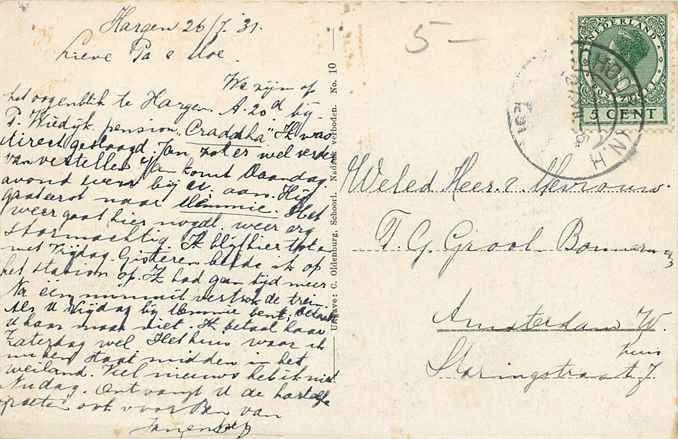 Hargen 26/7. 31.
Lieve Pa & Moe.
We zijn op
het oogenblik te Hargen A. Zd bij
P. Wiedijk pension „Craddha" Ik was
direct geslaagd. Jan zal er wel verder
van vertellen. Jan komt Dondag
avond even bij U aan. Hij
gaat eerst naar Mimmie. Het
weer gaat hier nogal. weer erg
stormachtig. Ik blijf hier tot a
met Vrijdag. Gisteren belde ik op
het station op. Ik had geen tijd meer
Na een minuut vertrok de trein.
Als U Vrijdag bij Mimmie bent, betaalt
U haar maar niet. Ik betaal haar
Zaterdag wel. Het huis waar ik
in ben staat midden in het
weiland. Veel nieuws heb ik niet
Vandaag. Ontvangt U de hartelijke
groeten ook voor Ben van
5-
NEDERLAND
5 CENT
N.H.
Uitgave: C. Oldenburg, Schoorl. Nadruk verboden. No. 10
Weled Heer & Mevrouw.
T. G. Groot-Bommerez
Amsterdam W.
huis
Staringstraat 7